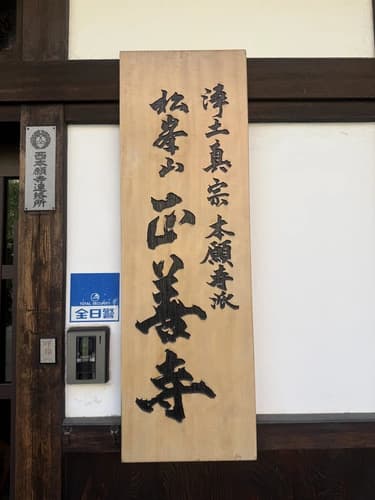 浄土真宗本願寺派
松峯山
正善寺
西本願寺連絡所
TOTAL SECURITY
全日警